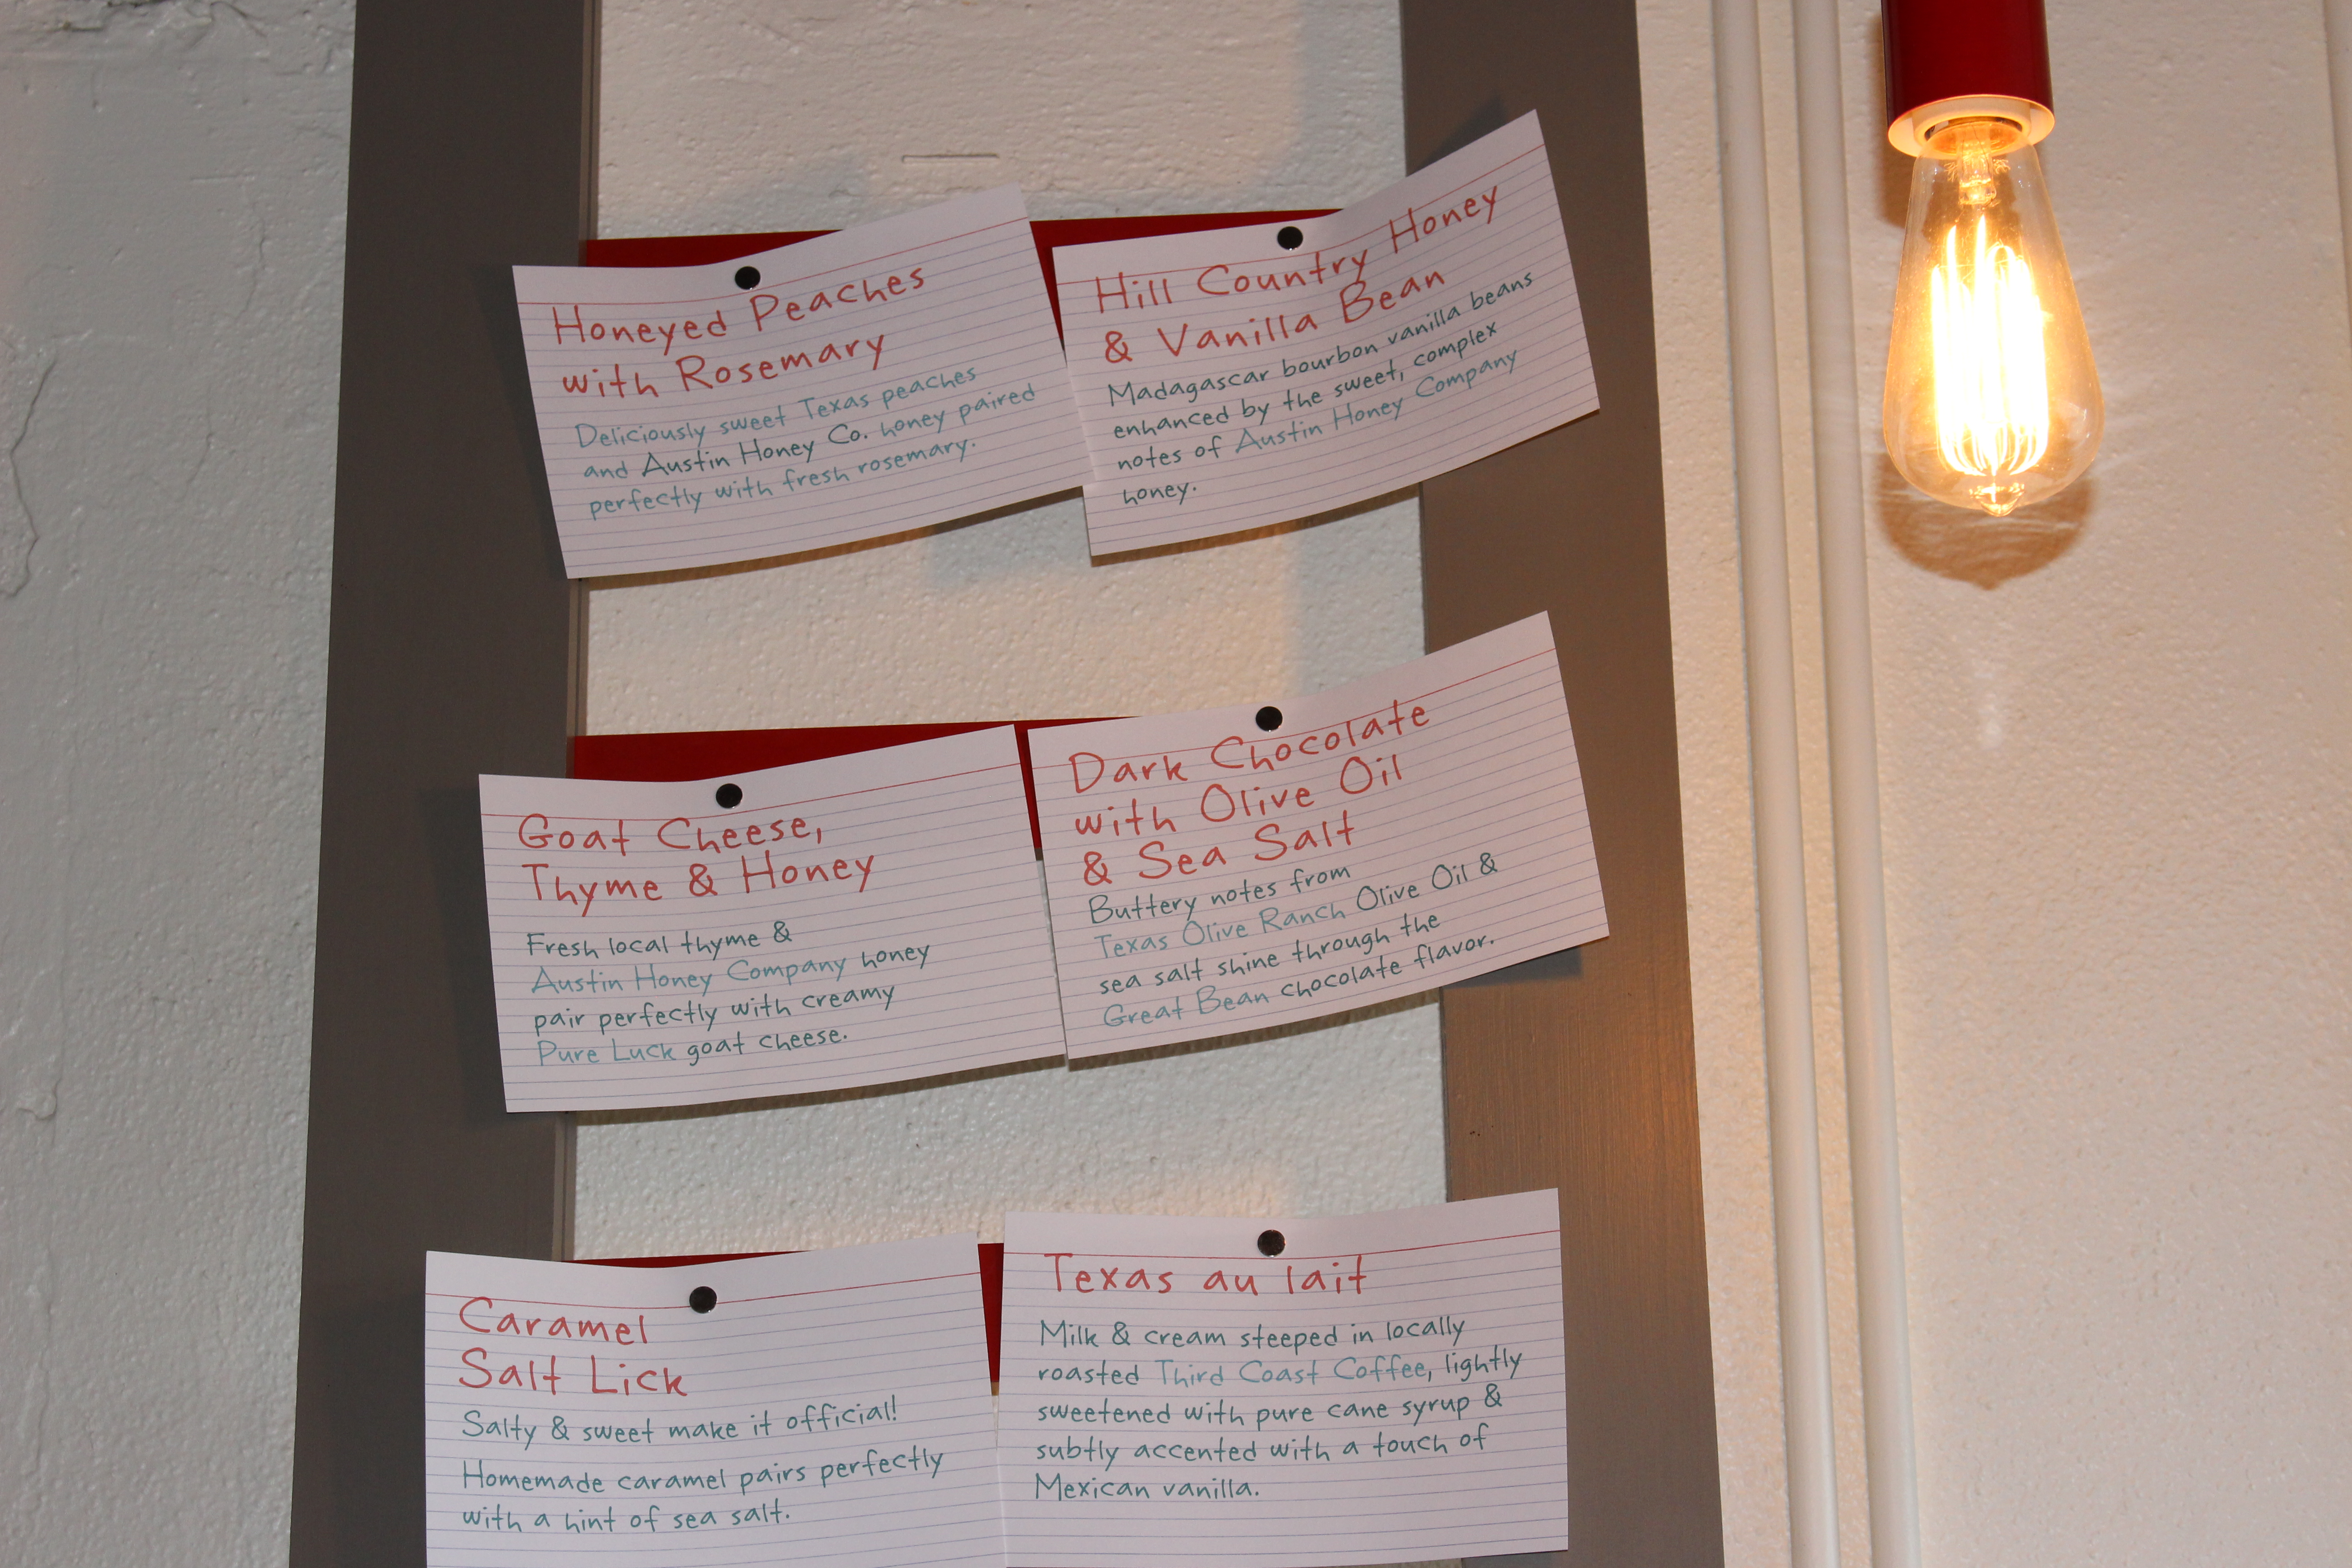 Honeyed Peaches
with Rosemary
Deliciously sweet Texas peaches
and Austin Honey Co. honey paired
perfectly with fresh rosemary.
Hill Country Honey
& Vanilla Bean
Madagascar bourbon vanilla beans
enhanced by the sweet, complex
notes of Austin Honey Company
honey.
Goat Cheese,
Thyme & Honey
Fresh local thyme &
Austin Honey Company honey
pair perfectly with creamy
Pure Luck goat cheese.
Dark Chocolate
with Olive Oil
& Sea Salt
Buttery notes from
Texas Olive Ranch Olive Oil &
sea salt shine through the
Great Bean chocolate flavor.
Caramel
Salt Lick
Salty & sweet make it official!
Homemade caramel pairs perfectly
with a hint of sea salt.
Texas au lait
Milk & cream steeped in locally
roasted Third Coast Coffee, lightly
sweetened with pure cane syrup &
subtly accented with a touch of
Mexican vanilla.